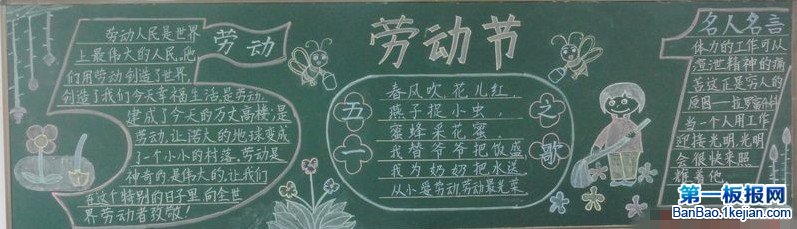 劳动
劳动人民是世界
上最伟大的人民。他
们用劳动创造了世界,
创造了我们今天幸福生活,是劳动,
建成了今天的万丈高楼,是
劳动,让诺大的地球变成
了一个小小的村落,劳动是
神奇的是伟大的,让我们
在这个特别的日子里,向全世
界劳动者致敬!
劳动节
五一
之歌
春风吹,花儿红,
燕子捉小虫,
蜜蜂采花蜜,
我替爷爷把饭盛,
我为奶奶把水送,
从小爱劳动劳动最光荣
名人名言
体力的工作可以
精神的痛
苦这正是穷人的
原因——拉罗
当一个人用工作
迎接光明,光明
会很快来照
耀着他。
第一板报网
BanBao.1kejian.com